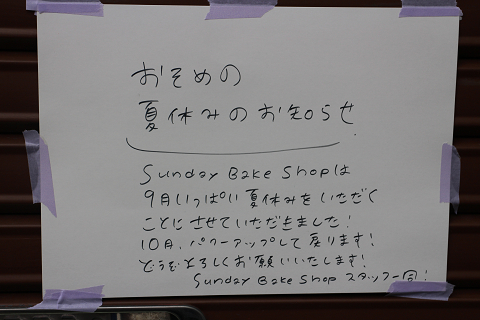 おそめの
夏休みのお知らせ.
Sunday Bake Shopは
9月いっぱい夏休みをいただく
ことにさせていただきました!
10月、パワーアップして戻ります!
どうぞよろしくお願いいたします!
Sunday Bake Shop スタッフ一同!